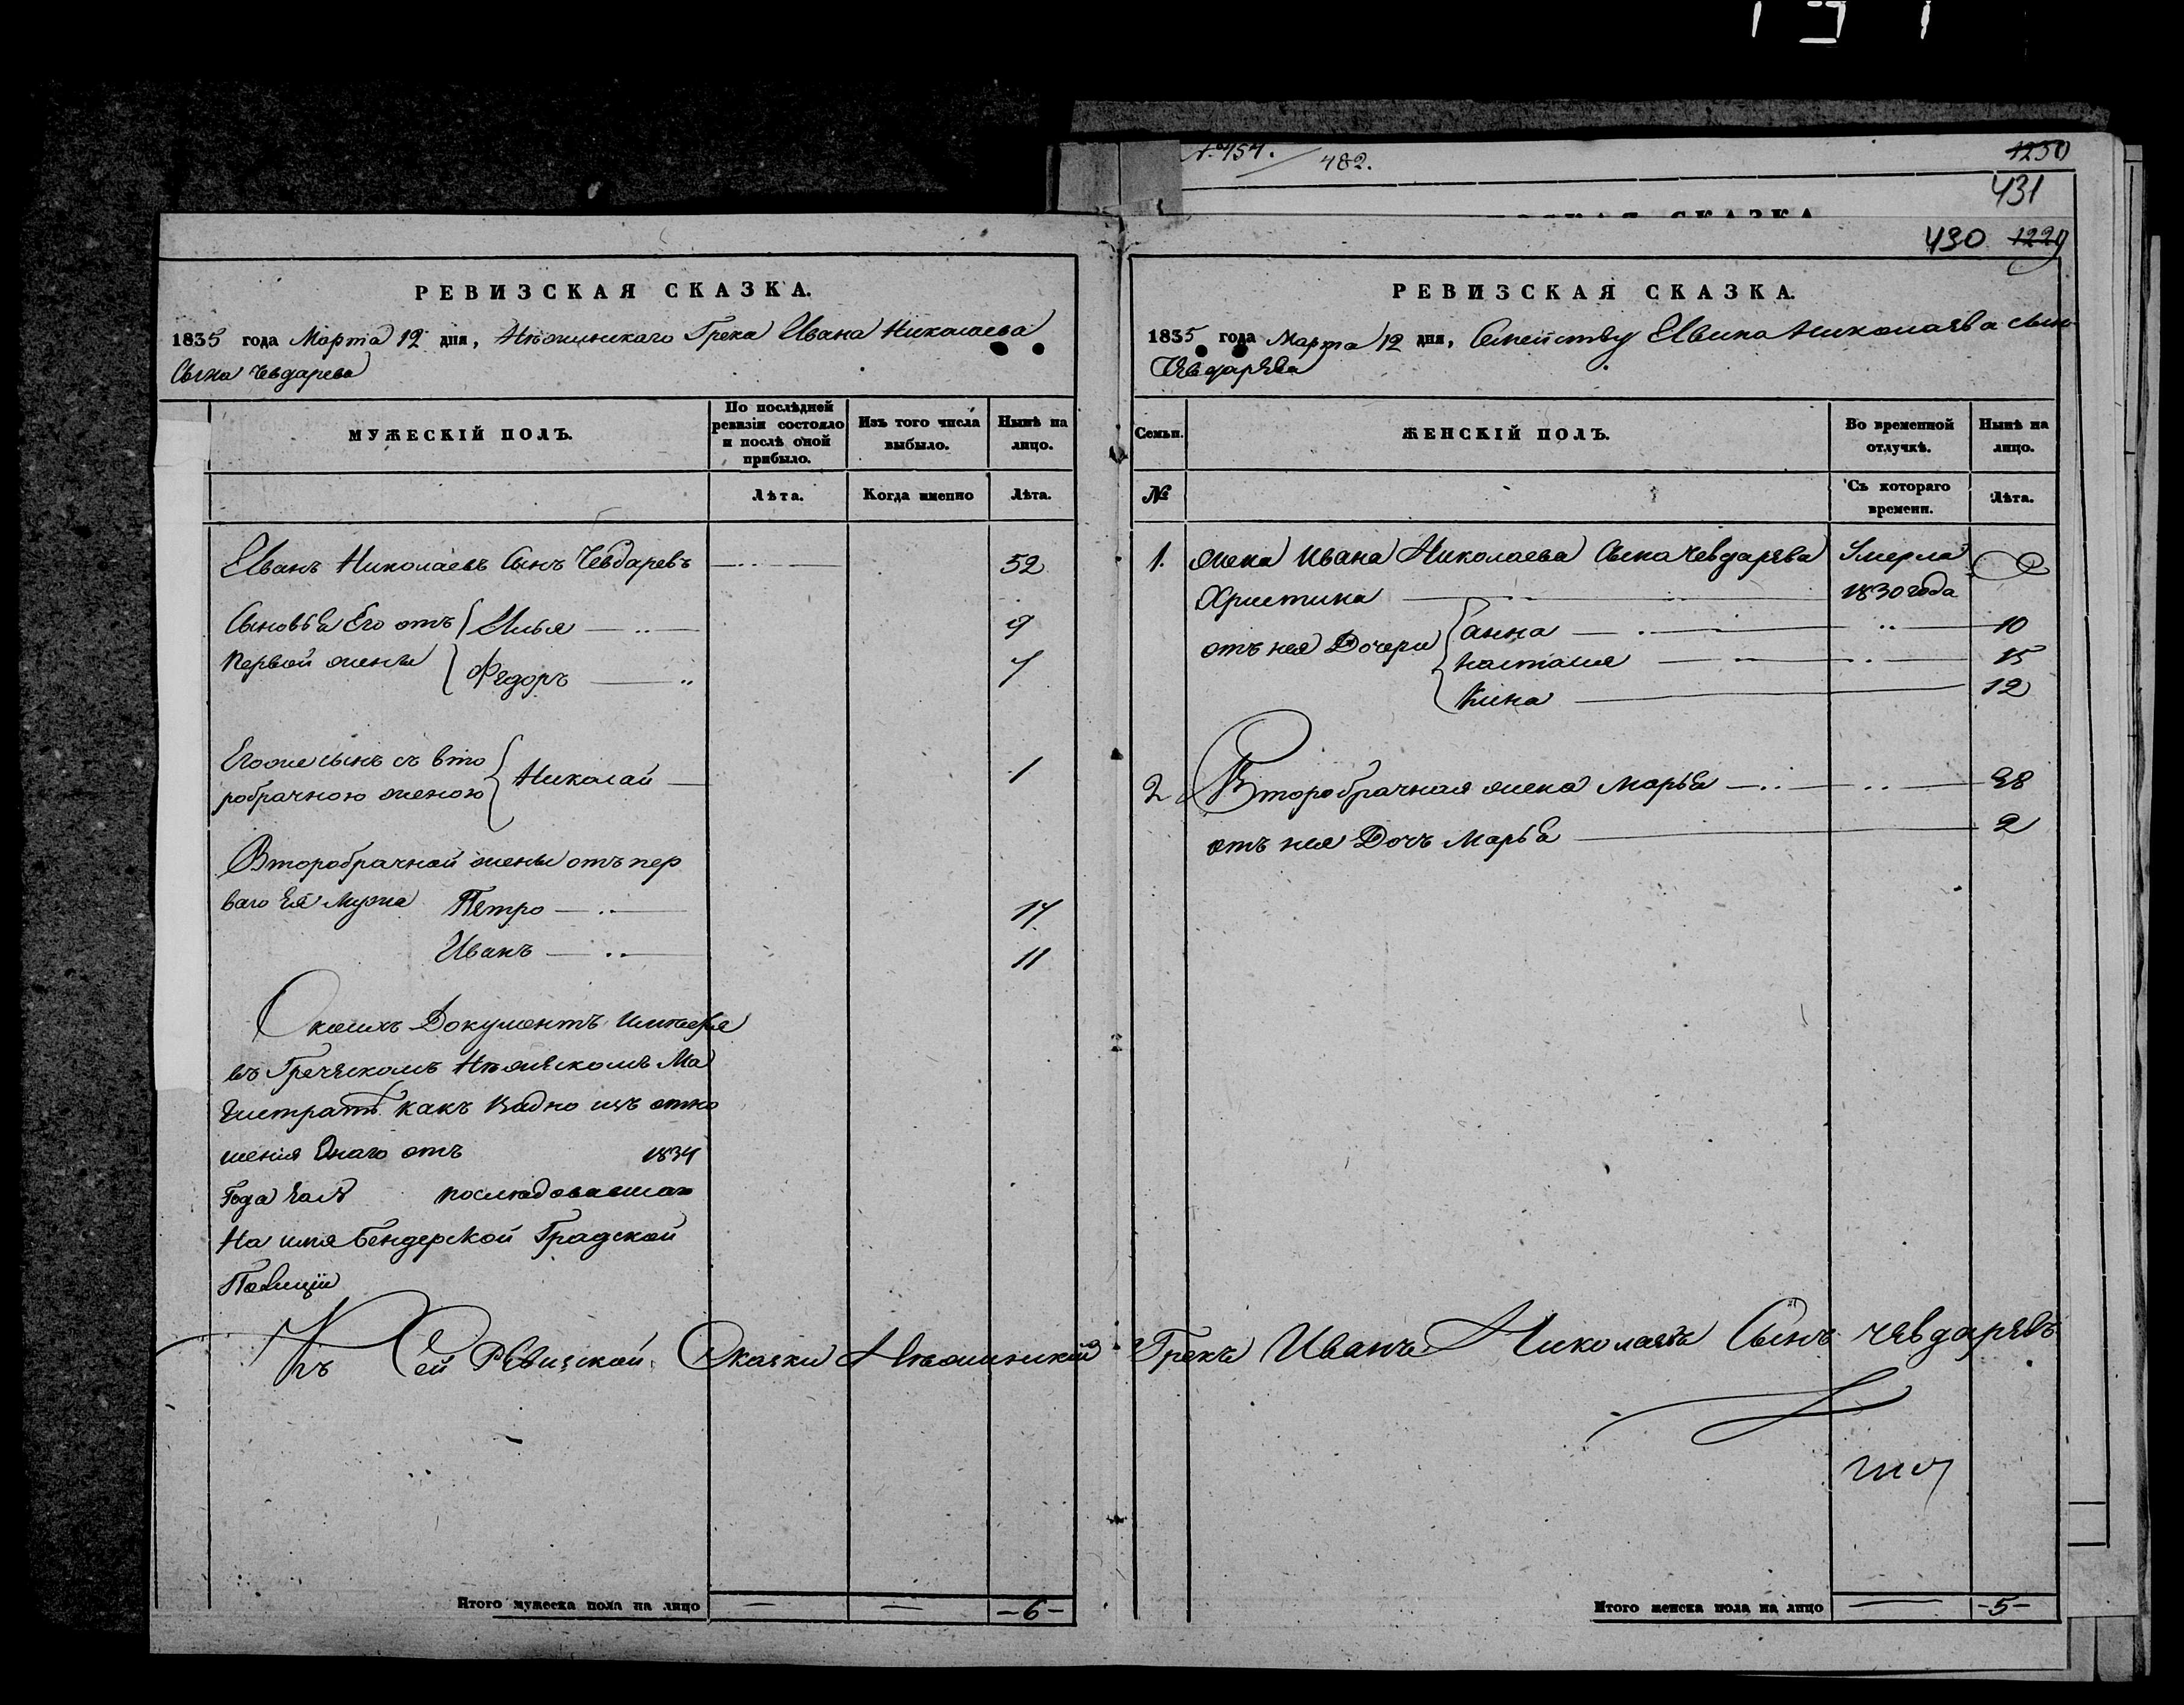 № 454. / 482.
1230
431
СКАЯ СКАЗКА
430 1229
РЕВИЗСКАЯ СКАЗКА.
1835 года Марта 12 дня, Нѣжинскаго Грека Ивана Николаева
Сына Чевдарева
МУЖЕСКІЙ ПОЛЪ.
По послѣдней ревизіи состояло и послѣ оной прибыло.
Изъ того числа выбыло.
Нынѣ на лицо.
Лѣта.
Когда именно
Лѣта.
Иванъ Николаевъ Сынъ Чевдаревъ 52
Сыновья Его отъ Илья 9
первой жены Федоръ 7
Егоже сынъ съ вто
робрачною женою Николай 1
Второбрачной жены отъ пер
ваго Ея Мужа Петро 14
Иванъ 11
О коихъ Документъ имѣетця
въ Греческомъ Нѣжинскомъ Ма
гистратѣ какъ видно изъ отно
шенія Онаго отъ 1834
Года за № послѣдовавшаго
На имя Бендерской Градской
Полиціи
Къ Сей Ревизской Сказки Нѣжинский Грекъ Иванъ Николаевъ Сынъ Чевдаревъ
Итого мужеска пола на лицо — — -6-
РЕВИЗСКАЯ СКАЗКА.
1835 года Марта 12 дня, Семейству Ивана Николаева сына
Чевдарева
Семьи.
ЖЕНСКІЙ ПОЛЪ.
Во временной отлучкѣ.
Нынѣ на лицо.
№
Съ котораго времени.
Лѣта.
1. жена Ивана Николаева Сына Чевдарева Умерла
Христина 1830 года
отъ нея Дочери Анна 10
Настасия 15
Кица 12
2 Второбрачная жена Марья 38
отъ нея Дочъ Марья 2
Итого женска пола на лицо — -5-